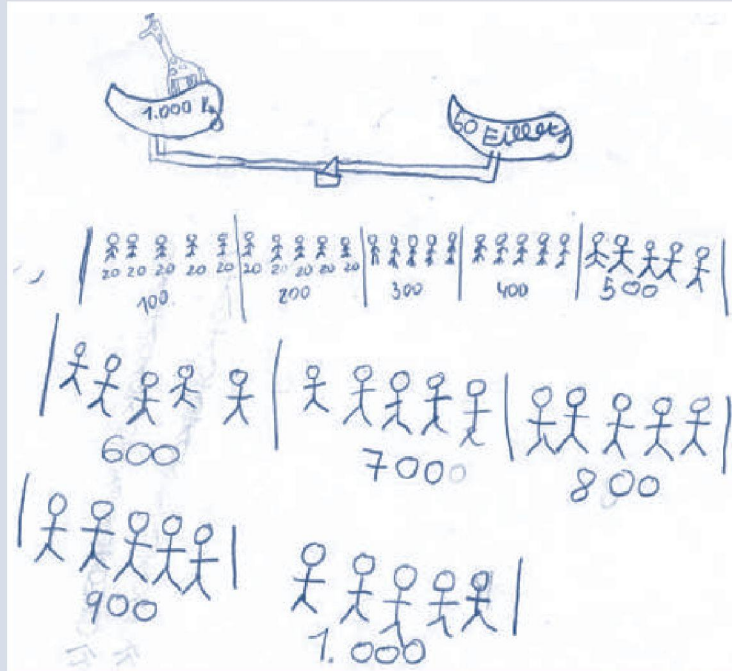 1.000 K
50 Eillets
20 20 20 20 20 20 20 20 20 20
100. 200 300 400 500
600 7000 800
900 1.000